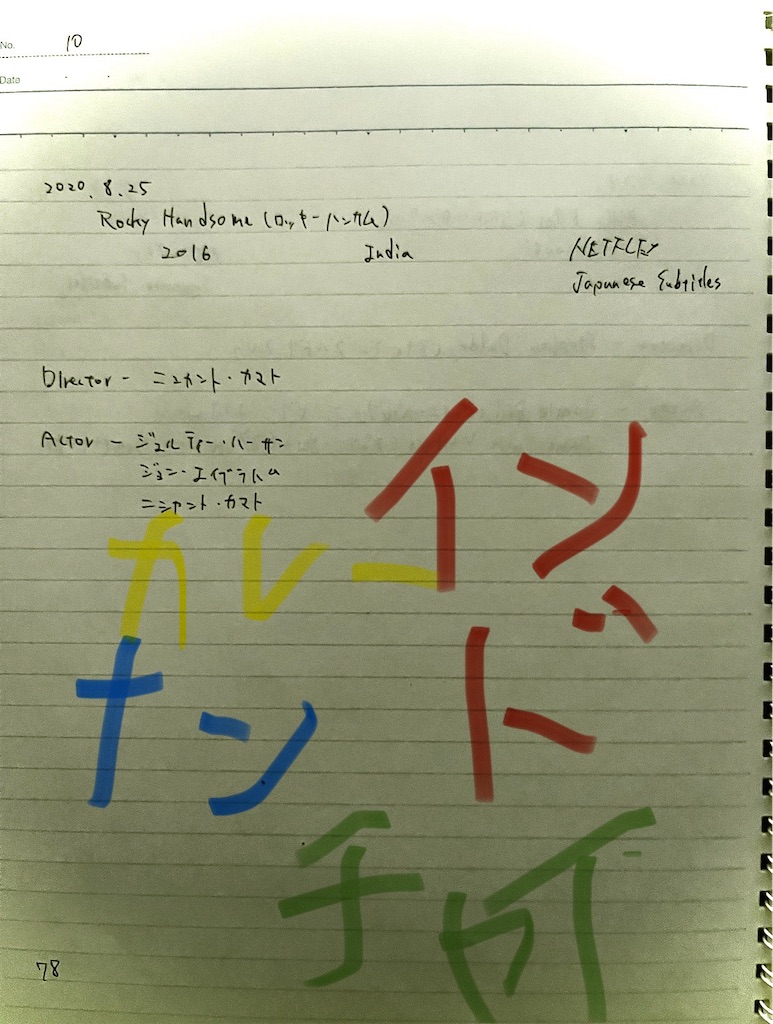 No. 10
Date
2020.8.25
Rocky Handsome (ロッキーハンサム)
2016 India NETFLIX
Japanese Subtitles
Director - ニシカント・カマト
Actor - シュルティー・ハーサン
ジョン・エイブラハム
カマト
インド
カレー
ナン
チャイ
78